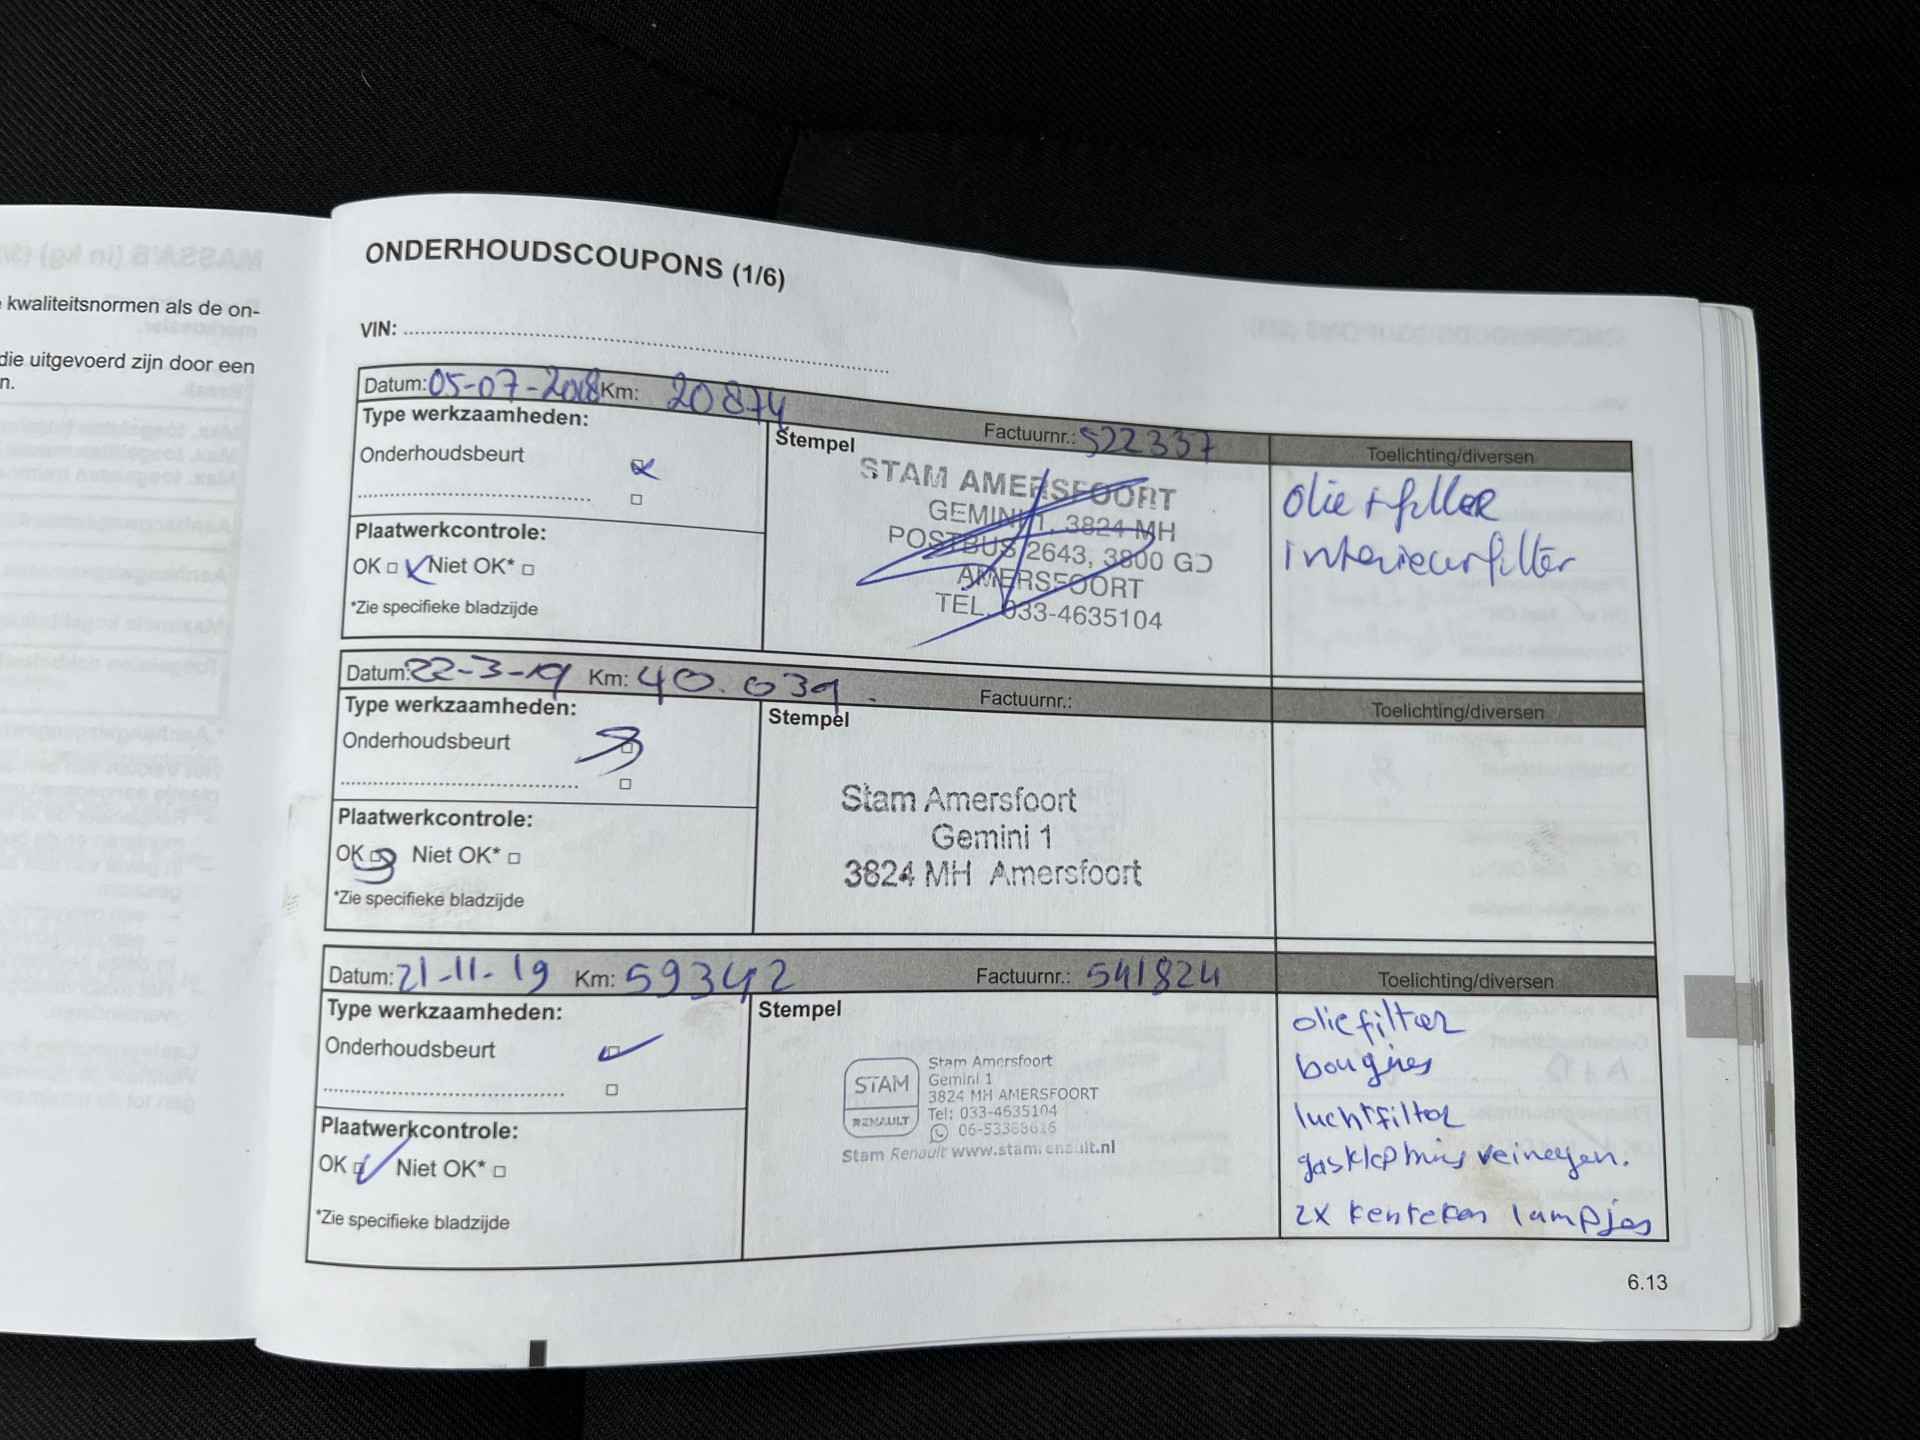 kwaliteitsnormen als de on-
die uitgevoerd zijn door een
n.
ONDERHOUDSCOUPONS (1/6)
VIN:
Datum: 05-07-2018 Km: 20874
Factuurnr.: 522337
Toelichting/diversen
Type werkzaamheden:
Onderhoudsbeurt
Plaatwerkcontrole:
OK Niet OK*
*Zie specifieke bladzijde
Stempel
STAM AMERSFOORT
GEMINI 1, 3824 MH
POSTBUS 2643, 3800 GD
AMERSFOORT
TEL. 033-4635104
olie + filter
interieurfilter
Datum: 22-3-19 Km: 40.039.
Factuurnr.:
Toelichting/diversen
Type werkzaamheden:
Onderhoudsbeurt
Plaatwerkcontrole:
OK Niet OK*
*Zie specifieke bladzijde
Stempel
Stam Amersfoort
Gemini 1
3824 MH Amersfoort
Datum: 21-11-19 Km: 59342
Factuurnr.: 541824
Toelichting/diversen
Type werkzaamheden:
Onderhoudsbeurt
Plaatwerkcontrole:
OK Niet OK*
*Zie specifieke bladzijde
Stempel
STAM
RENAULT
Stam Amersfoort
Gemini 1
3824 MH AMERSFOORT
Tel: 033-4635104
Stam Renault www.stamrenault.nl
oliefilter
bougies
luchtfilter
gasklephuis reinegen.
2x kenteken lampjes
6.13